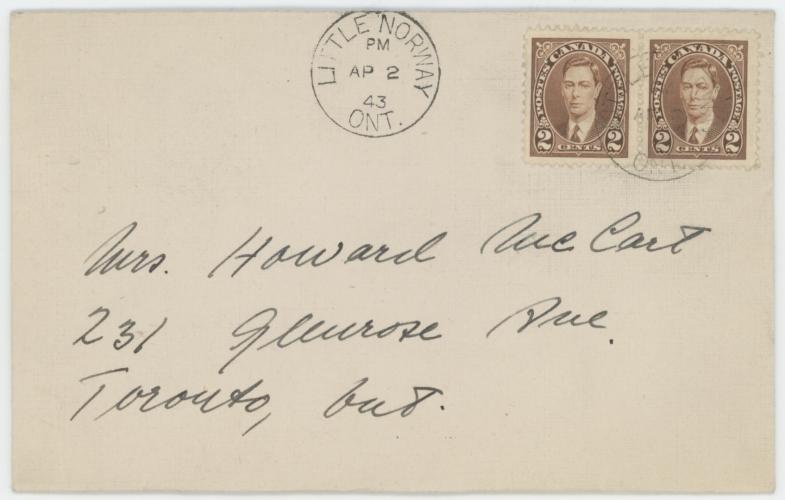 LITTLE NORWAY
PM
AP 2
43
ONT.
POSTES CANADA POSTAGE
2 CENTS 2
POSTES CANADA POSTAGE
2 CENTS 2
Mrs. Howard McCart
231 Glenrose Ave.
Toronto, Ont.